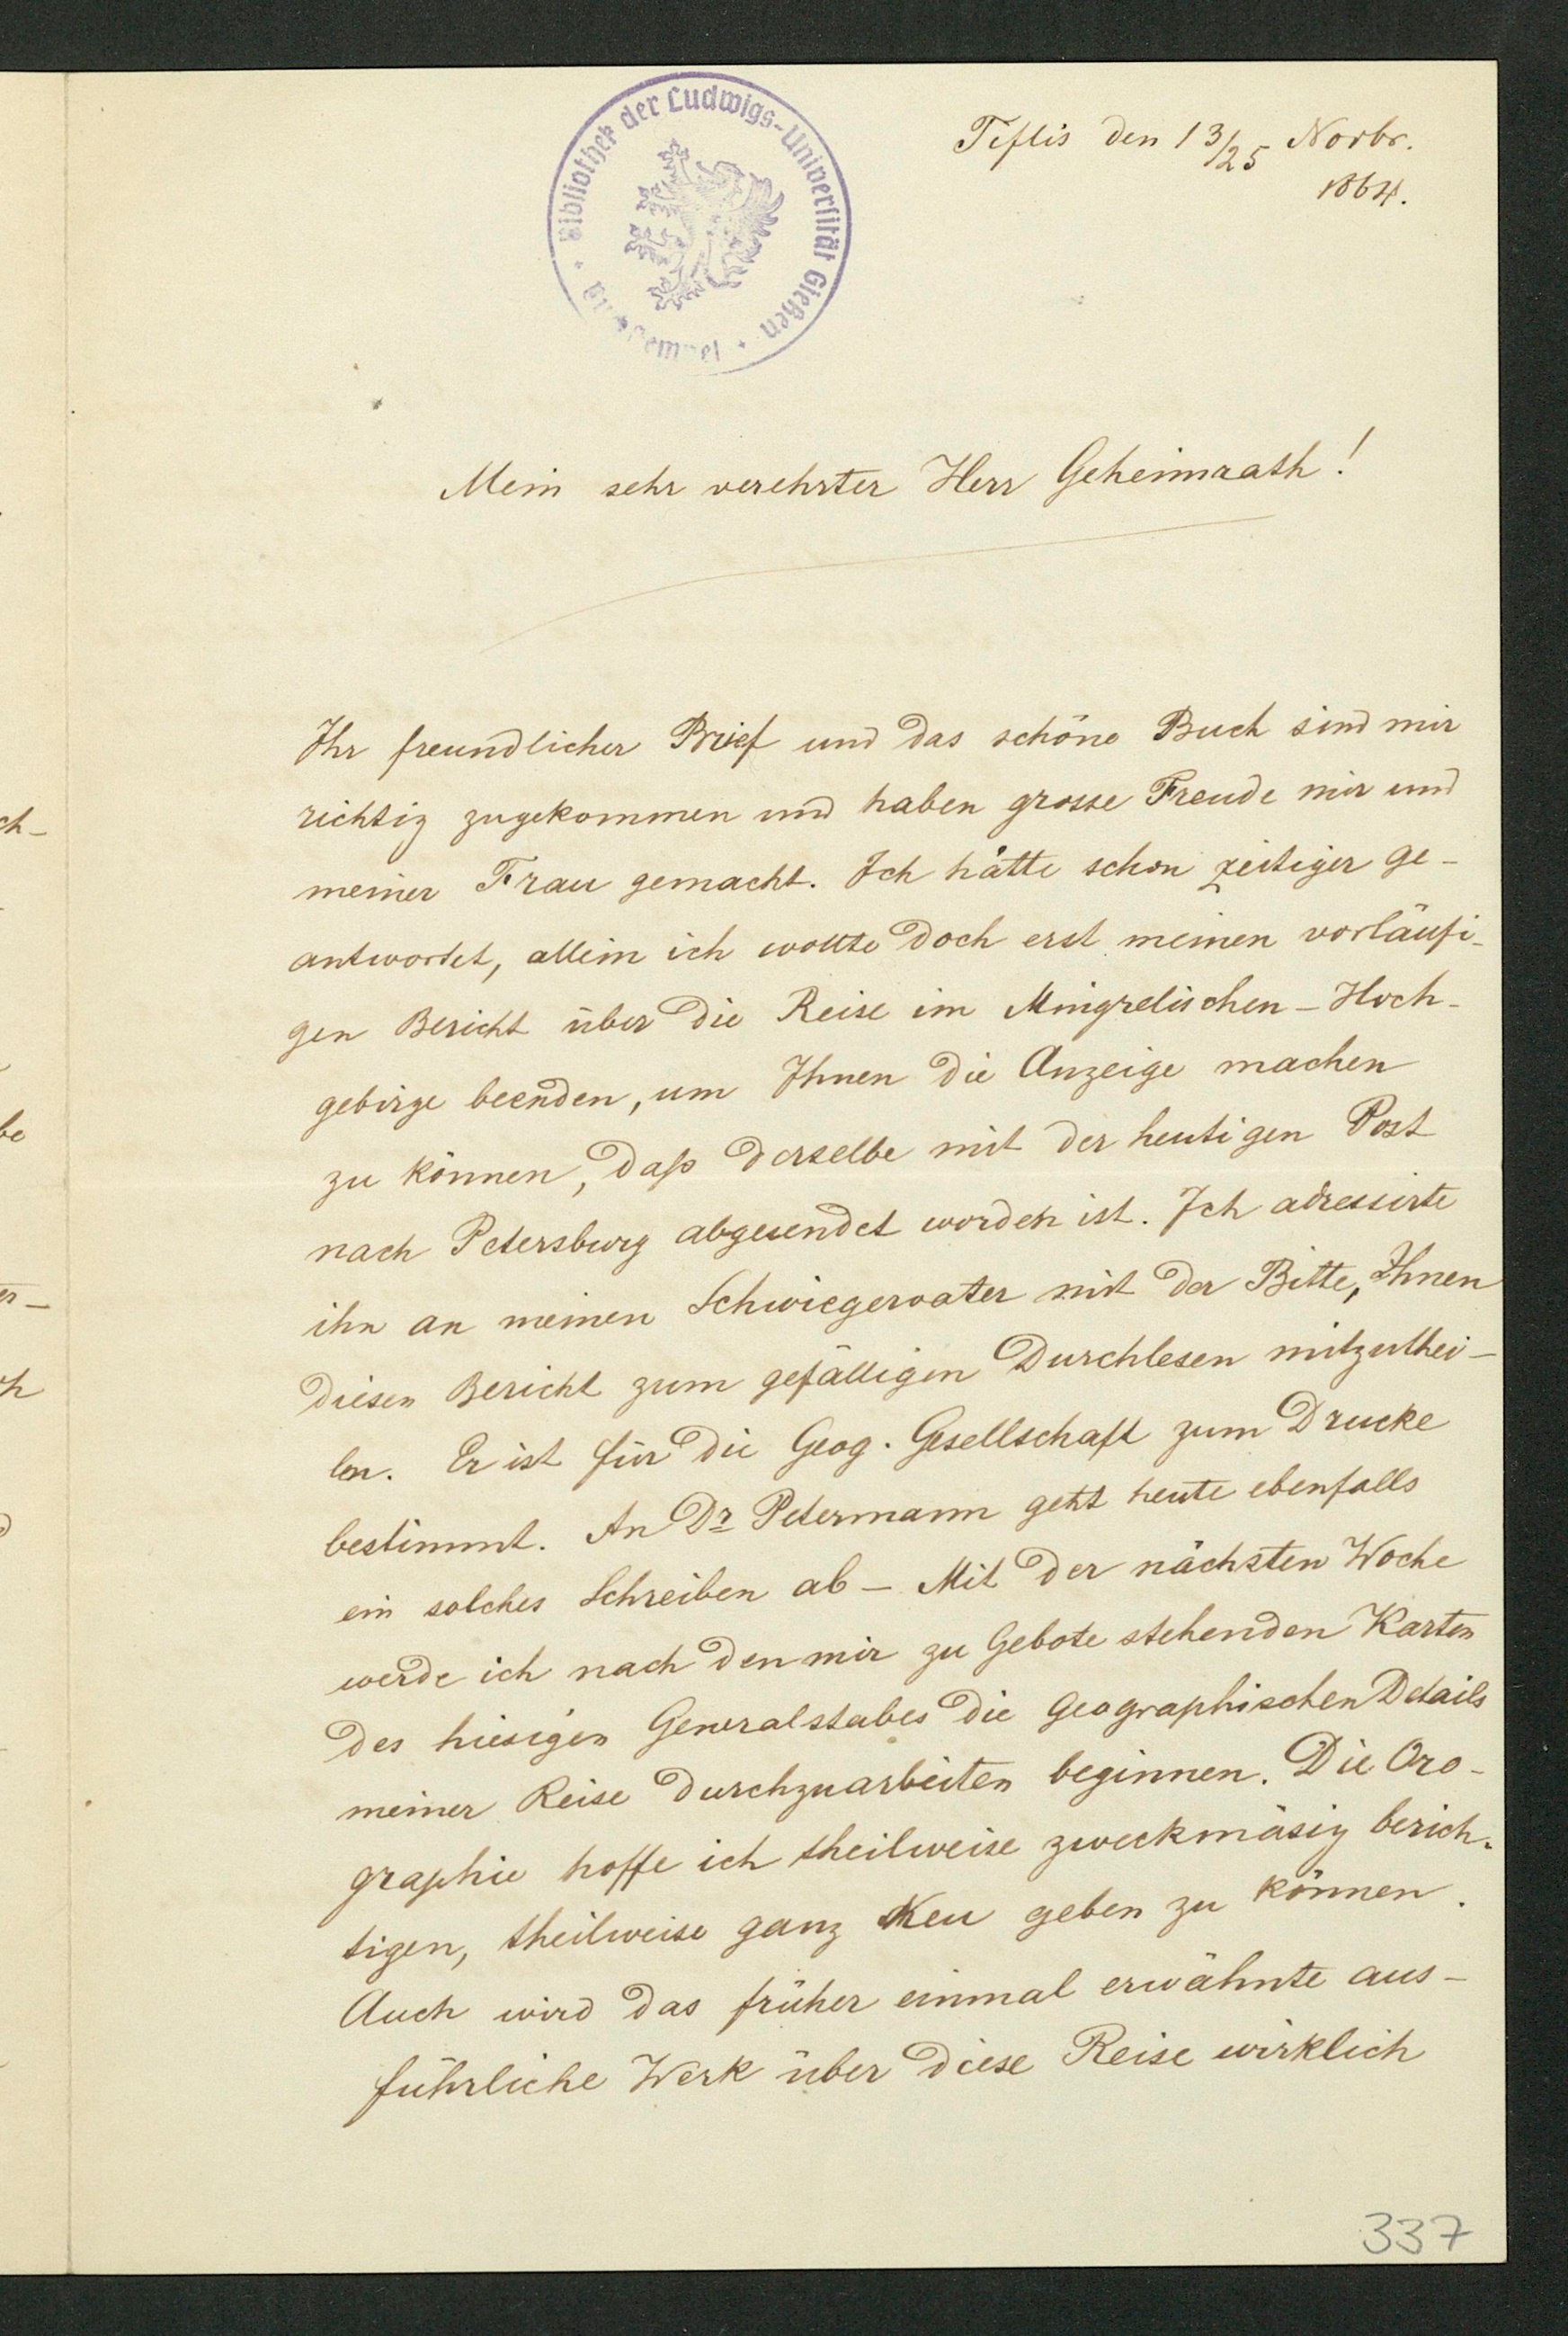 Bibliothek der Ludwigs-Universität Gießen
Tiflis den 13/25 Novbr.
1864.
Mein sehr verehrter Herr Geheimrath!
Ihr freundlicher Brief und das schöne Buch sind mir
richtig zugekommen und haben grosse Freude mir und
meiner Frau gemacht. Ich hätte schon zeitiger ge-
antwortet, allein ich wollte doch erst meinen vorläufi-
gen Bericht über die Reise im Mingrelischen-Hoch-
gebirge beenden, um Ihnen die Anzeige machen
zu können, daß derselbe mit der heutigen Post
nach Petersburg abgesendet worden ist. Ich adressirte
ihn an meinen Schwiegervater mit der Bitte, Ihnen
diesen Bericht zum gefälligen Durchlesen mitzuthei-
len. Er ist für die Geog. Gesellschaft zum Drucke
bestimmt. An Dr Petermann geht heute ebenfalls
ein solches Schreiben ab - Mit der nächsten Woche
werde ich nach den mir zu Gebote stehenden Karten
des hiesigen Generalstabes die geographischen Details
meiner Reise durchzuarbeiten beginnen. Die Oro-
graphie hoffe ich theilweise zweckmäsig berich-
tigen, theilweise ganz Neu geben zu können.
Auch wird das früher einmal erwähnte aus-
führliche Werk über diese Reise wirklich
337